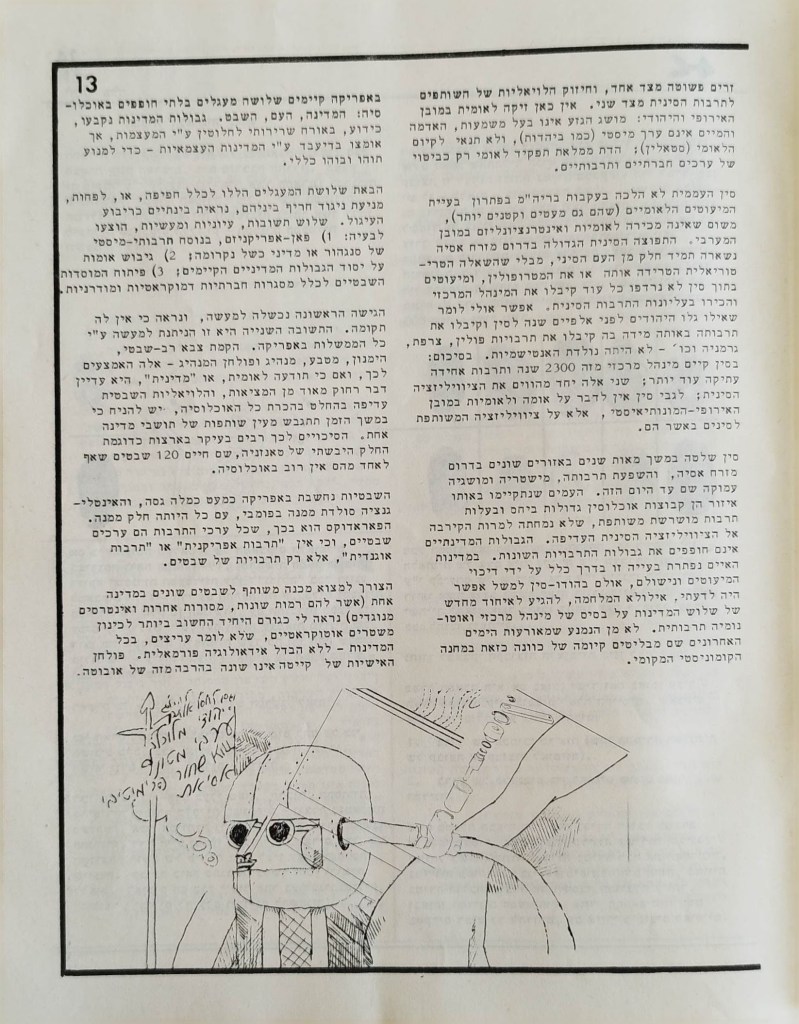 13
זרים פשוטה מצד אחד, וחיזוק הלויאליות של השותפים
לתרבות הסינית מצד שני. אין כאן זיקה לאומית במובן
האירופי והיהודי: מושג הגזע אינו בעל משמעות, האדמה
והמיים אינם ערך מיסטי (כמו ביהדות), ולא תנאי לקיום
הלאומי (סטאלין); הדת ממלאת תפקיד לאומי רק כביטוי
של ערכים חברתיים ותרבותיים.
סין העממית לא הלכה בעקבות בריה"מ בפתרון בעיית
המיעוטים הלאומיים (שהם גם מעטים וקטנים יותר),
משום שאינה מכירה לאומיות ואינטרנציונליזם במובן
המערבי. התפוצה הסינית הגדולה בדרום מזרח אסיה
נשארה תמיד חלק מן העם הסיני, מבלי שהשאלה הטרי-
טוריאלית הטרידה אותה או את המטרופולין, ומיעוטים
בתוך סין לא נרדפו כל עוד קיבלו את המינהל המרכזי
והכירו בעליונות התרבות הסינית. אפשר אולי לומר
שאילו גלו היהודים לפני אלפיים שנה לסין וקיבלו את
תרבותה באותה מידה בה קיבלו את תרבויות פולין, צרפת,
גרמניה וכו' - לא היתה נולדת האנטישמיות. בסיכום:
בסין קיים מינהל מרכזי מזה 2300 שנה ותרבות אחידה
עתיקה עוד יותר; שני אלה יחד מהווים את הציוויליזציה
הסינית; לגבי סין אין לדבר על אומה ולאומיות במובן
האירופי-המונותיאיסטי, אלא על ציוויליזציה המשותפת
לסינים באשר הם.
סין שלטה במשך מאות שנים באזורים שונים בדרום
מזרח אסיה, והשפעת תרבותה, מישטריה ומושגיה
עמוקה שם עד היום הזה. העמים שנתקיימו באותו
איזור הן קבוצות אוכלוסין גדולות ביחס ובעלות
תרבות מושרשת משותפת, שלא נמחתה למרות הקירבה
אל הציוויליזציה הסינית העדיפה. הגבולות המדינתיים
אינם חופפים את גבולות התרבויות השונות. במדינות
האיים נפתרת בעייה זו בדרך כלל על ידי דיכוי
המיעוטים ונישולם, אולם בהודו-סין למשל אפשר
היה לדעתי, אילולא המלחמה, להגיע לאיחוד מחדש
של שלוש המדינות על בסיס של מינהל מרכזי ואוטו-
נומיה תרבותית. לא מן הנמנע שמאורעות הימים
האחרונים שם מבליטים קיומה של כוונה כזאת במחנה
הקומוניסטי המקומי.
באפריקה קיימים שלושה מעגלים בלתי חופפים באוכלו-
סיה: המדינה, העם, השבט. גבולות המדינות נקבעו,
כידוע, באורח שרירותי לחלוטין ע"י המעצמות, אך
אומצו בדיעבד ע"י המדינות העצמאיות - כדי למנוע
תוהו ובוהו כללי.
הבאת שלושת המעגלים הללו לכלל חפיפה, או, לפחות,
מניעת ניגוד חריף ביניהם, נראית בינתיים כריבוע
העיגול. שלוש תשובות, עיוניות ומעשיות, הוצעו
לבעיה: 1) פאן-אפריקניזם, בנוסח תרבותי-מיסטי
של סנגהור או מדיני כשל נקרומה; 2) גיבוש אומות
על יסוד הגבולות המדיניים הקיימים; 3) פיתוח המוסדות
השבטיים לכלל מסגרות חברתיות דמוקראטיות ומודרניות.
הגישה הראשונה נכשלה למעשה, ונראה כי אין לה
תקומה. התשובה השנייה היא זו הניתנת למעשה ע"י
כל הממשלות באפריקה. הקמת צבא רב-שבטי,
הימנון, מטבע, מנהיג ופולחן המנהיג - אלה האמצעים
לכך, ואם כי תודעה לאומית, או "מדינית", היא עדיין
דבר רחוק מאוד מן המציאות, והלויאליות השבטית
עדיפה בהחלט בהכרת כל האוכלוסיה, יש להניח כי
במשך הזמן תתגבש מעין שותפות של תושבי מדינה
אחת. הסיכויים לכך רבים בעיקר בארצות כדוגמת
החלק היבשתי של טאנזניה, שם חיים 120 שבטים שאף
לאחד מהם אין רוב באוכלוסיה.
השבטיות נחשבת באפריקה כמעט כמלה גסה, והאינטלי-
גנציה סולדת ממנה בפומבי, עם כל היותה חלק ממנה.
הפאראדוקס הוא בכך, שכל ערכי התרבות הם ערכים
שבטיים, וכי אין "תרבות אפריקנית" או "תרבות
אוגנדית", אלא רק תרבויות של שבטים.
הצורך למצוא מכנה משותף לשבטים שונים במדינה
אחת (אשר להם רמות שונות, מסורות אחרות ואינטרסים
מנוגדים) נראה לי כגורם היחיד החשוב ביותר לכינון
משטרים אוטוקראטיים, שלא לומר עריצים, בכל
המדינות - ללא הבדל אידאולוגיה פורמאלית. פולחן
האישיות של קייטה אינו שונה בהרבה מזה של אובוטה.
יהודי מלוכלך
ערבי מטונף
שחור פרימיטיבי
אסיאתי